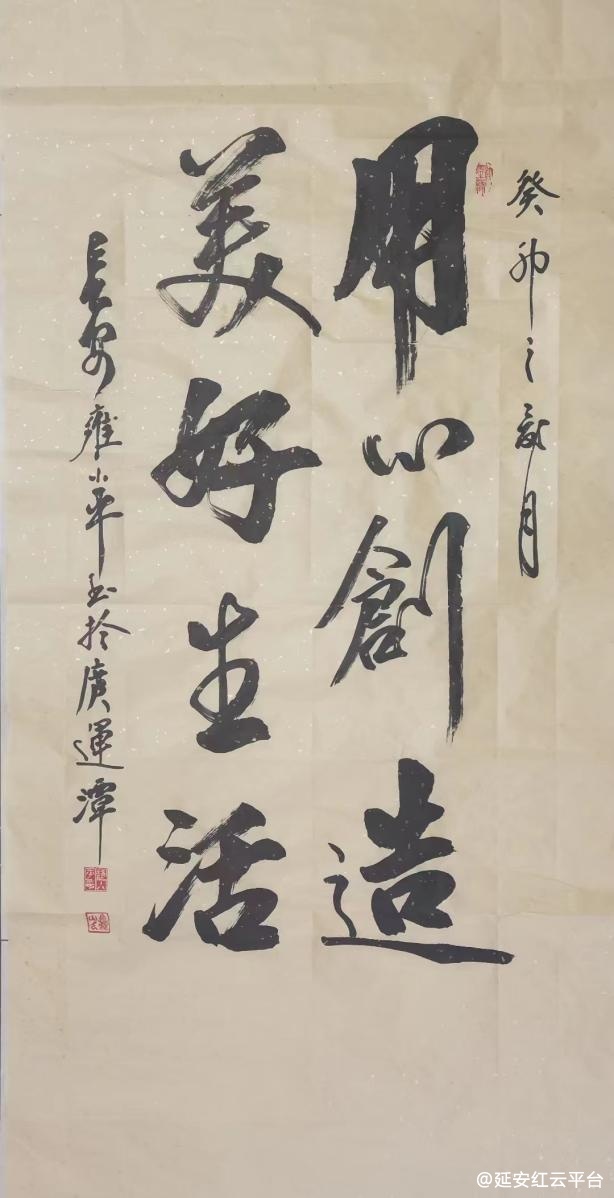 癸卯之岁月
用心創造
美好生活
長安雍小平書於廣運潭
@延安红云平台